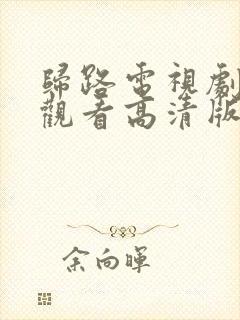 歸路電視劇
觀看高清版
余向暉